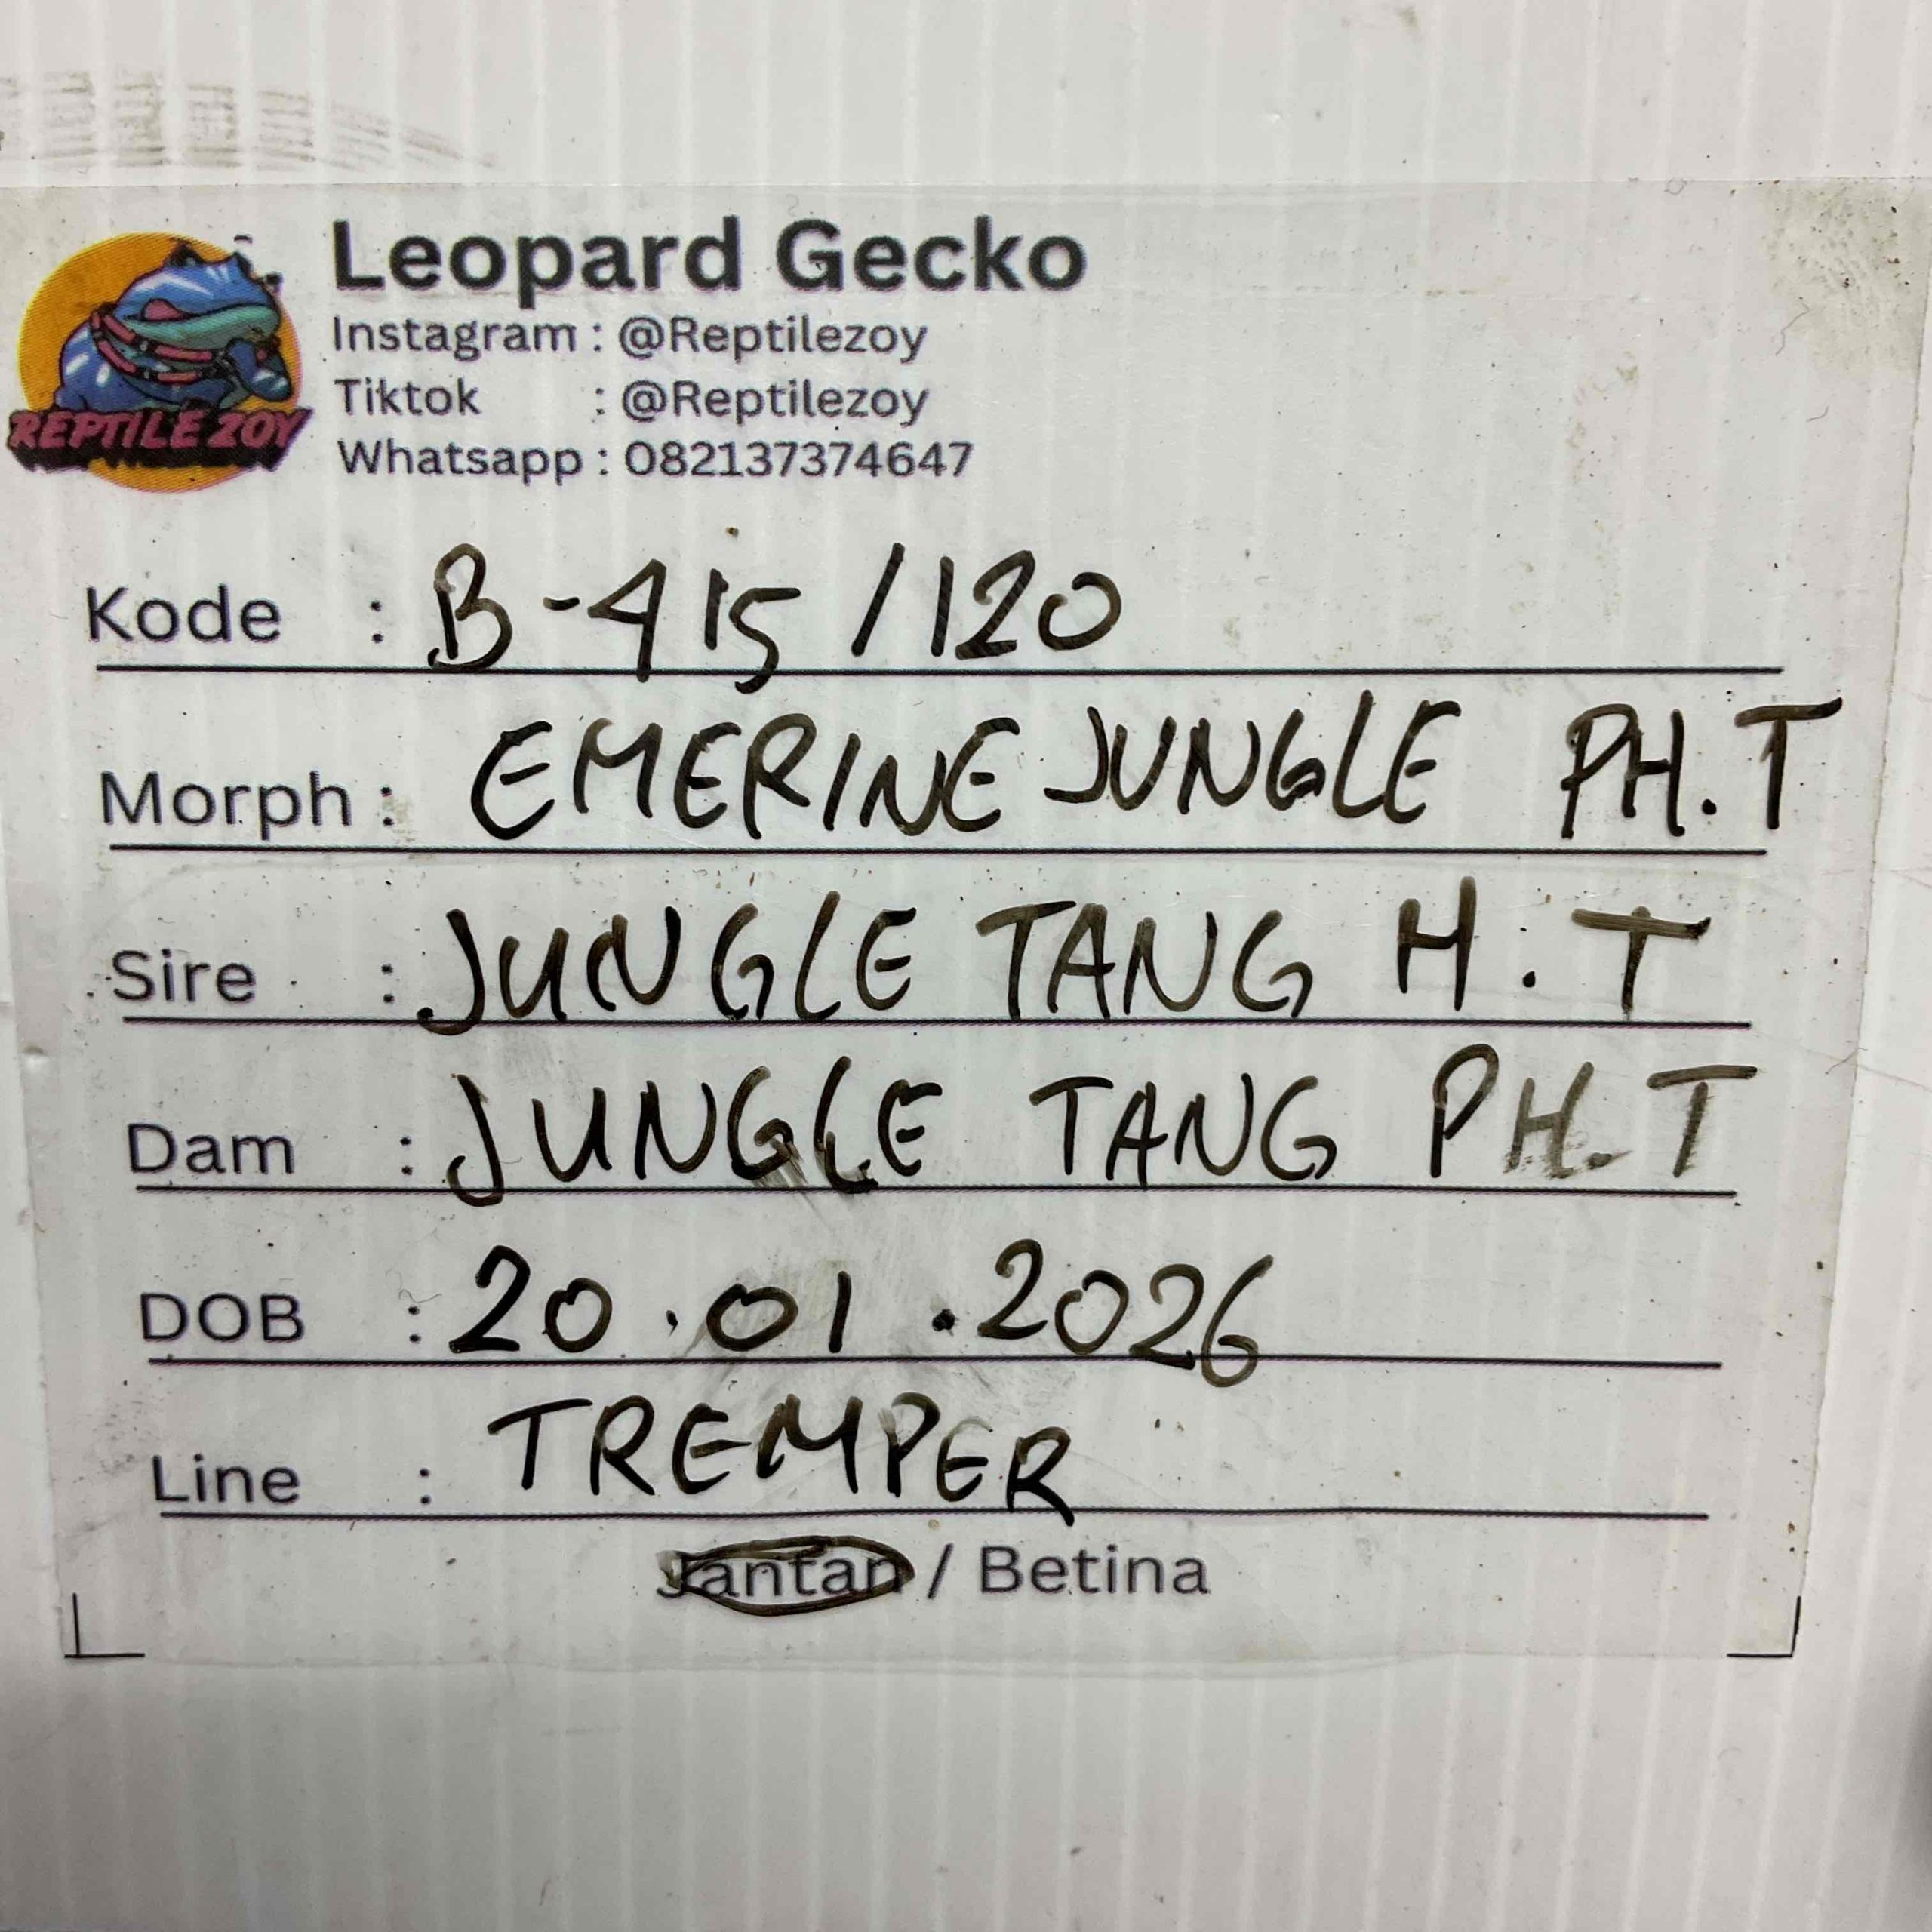 Leopard Gecko
Instagram : @Reptilezoy
Tiktok : @Reptilezoy
Whatsapp : 082137374647
REPTILE ZOY
Kode : B-415/120
Morph : EMERINE JUNGLE PH.T
Sire : JUNGLE TANG H.T
Dam : JUNGLE TANG PH.T
DOB : 20.01.2026
Line : TREMPER
Jantan / Betina